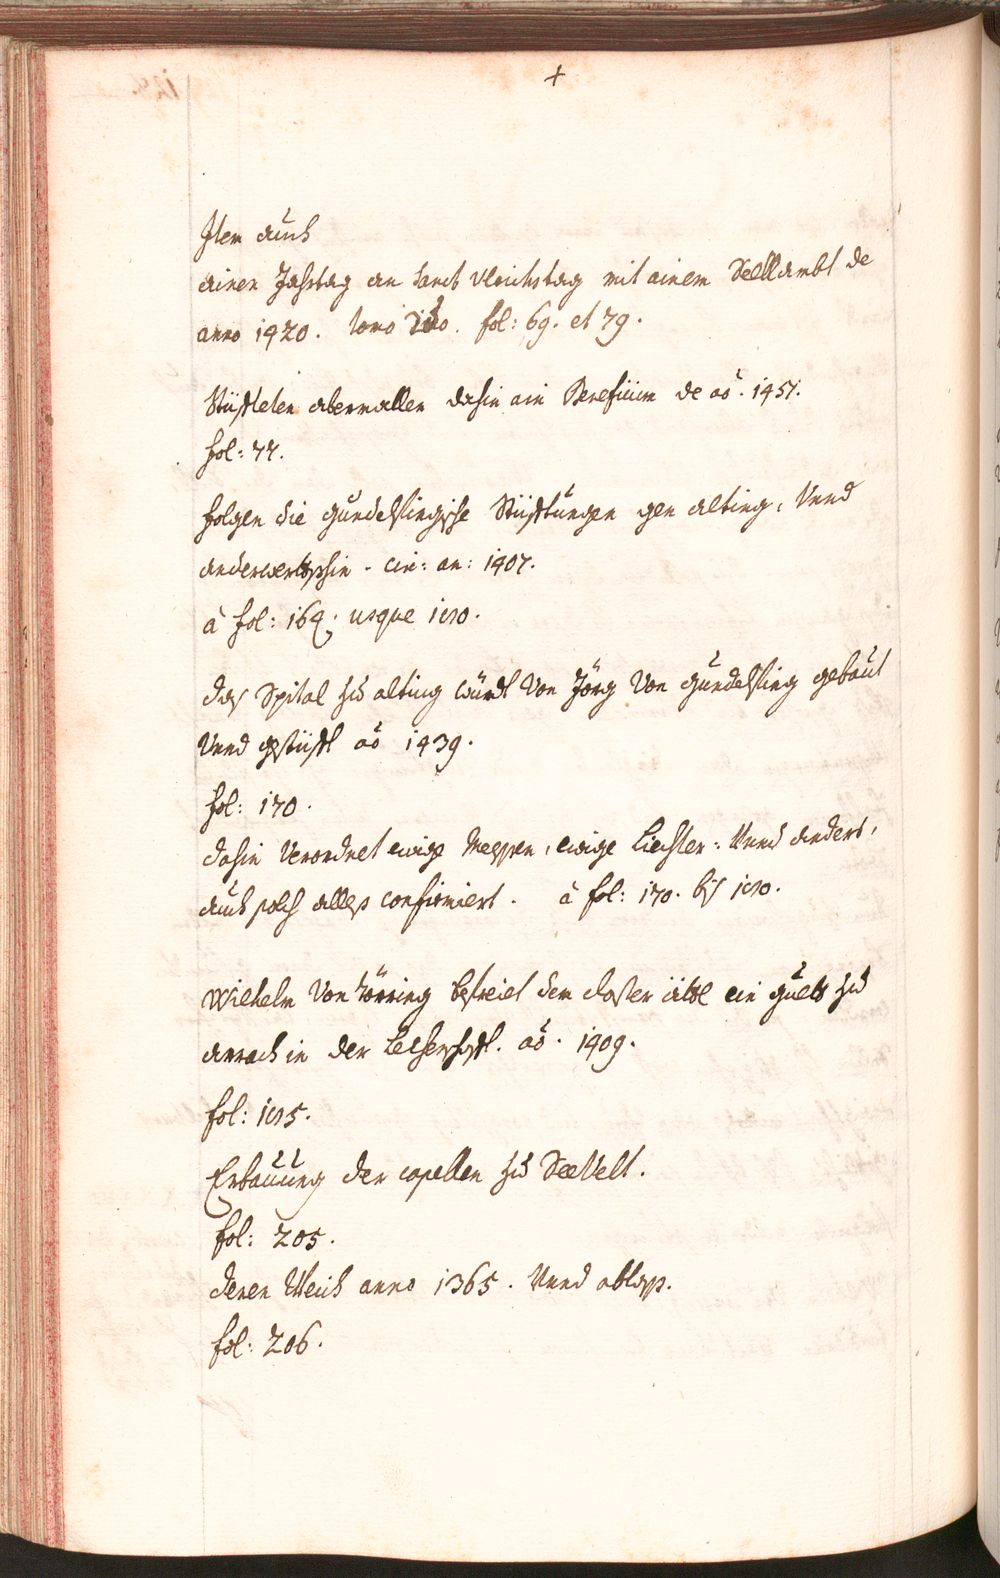 +
Item auch
ainen Jahrtag an sanct Vlrichstag mit ainem Seellambt de
anno 1420. tomo 2do. fol: 69. et 79.
Stüffteten abermallen dahin ain Beneficium de aō. 1451.
fol: 77.
folgen die gundelfingische Stüfftungen gen alting, Vnnd
anderwertshin - cir: an: 1407.
à fol: 164. usque 180.
das Spital zu alting würdt Von Jörg Von gundelfing gebaut
Vnnd gestüfft aō 1439.
fol: 170.
dahin Verordnet ewige Messen, ewige Liechter: Vnnd anders,
auch solch alless confirmiert. à fol: 170. biß 180.
Wilhelm Von Törring befreiet dem closter ein guett zu
in der aō. 1409.
fol: 185.
Erbauung der capellen zu SeeVelt.
fol: 205.
deren Weich anno 1365. Vnnd ablass.
fol: 206.